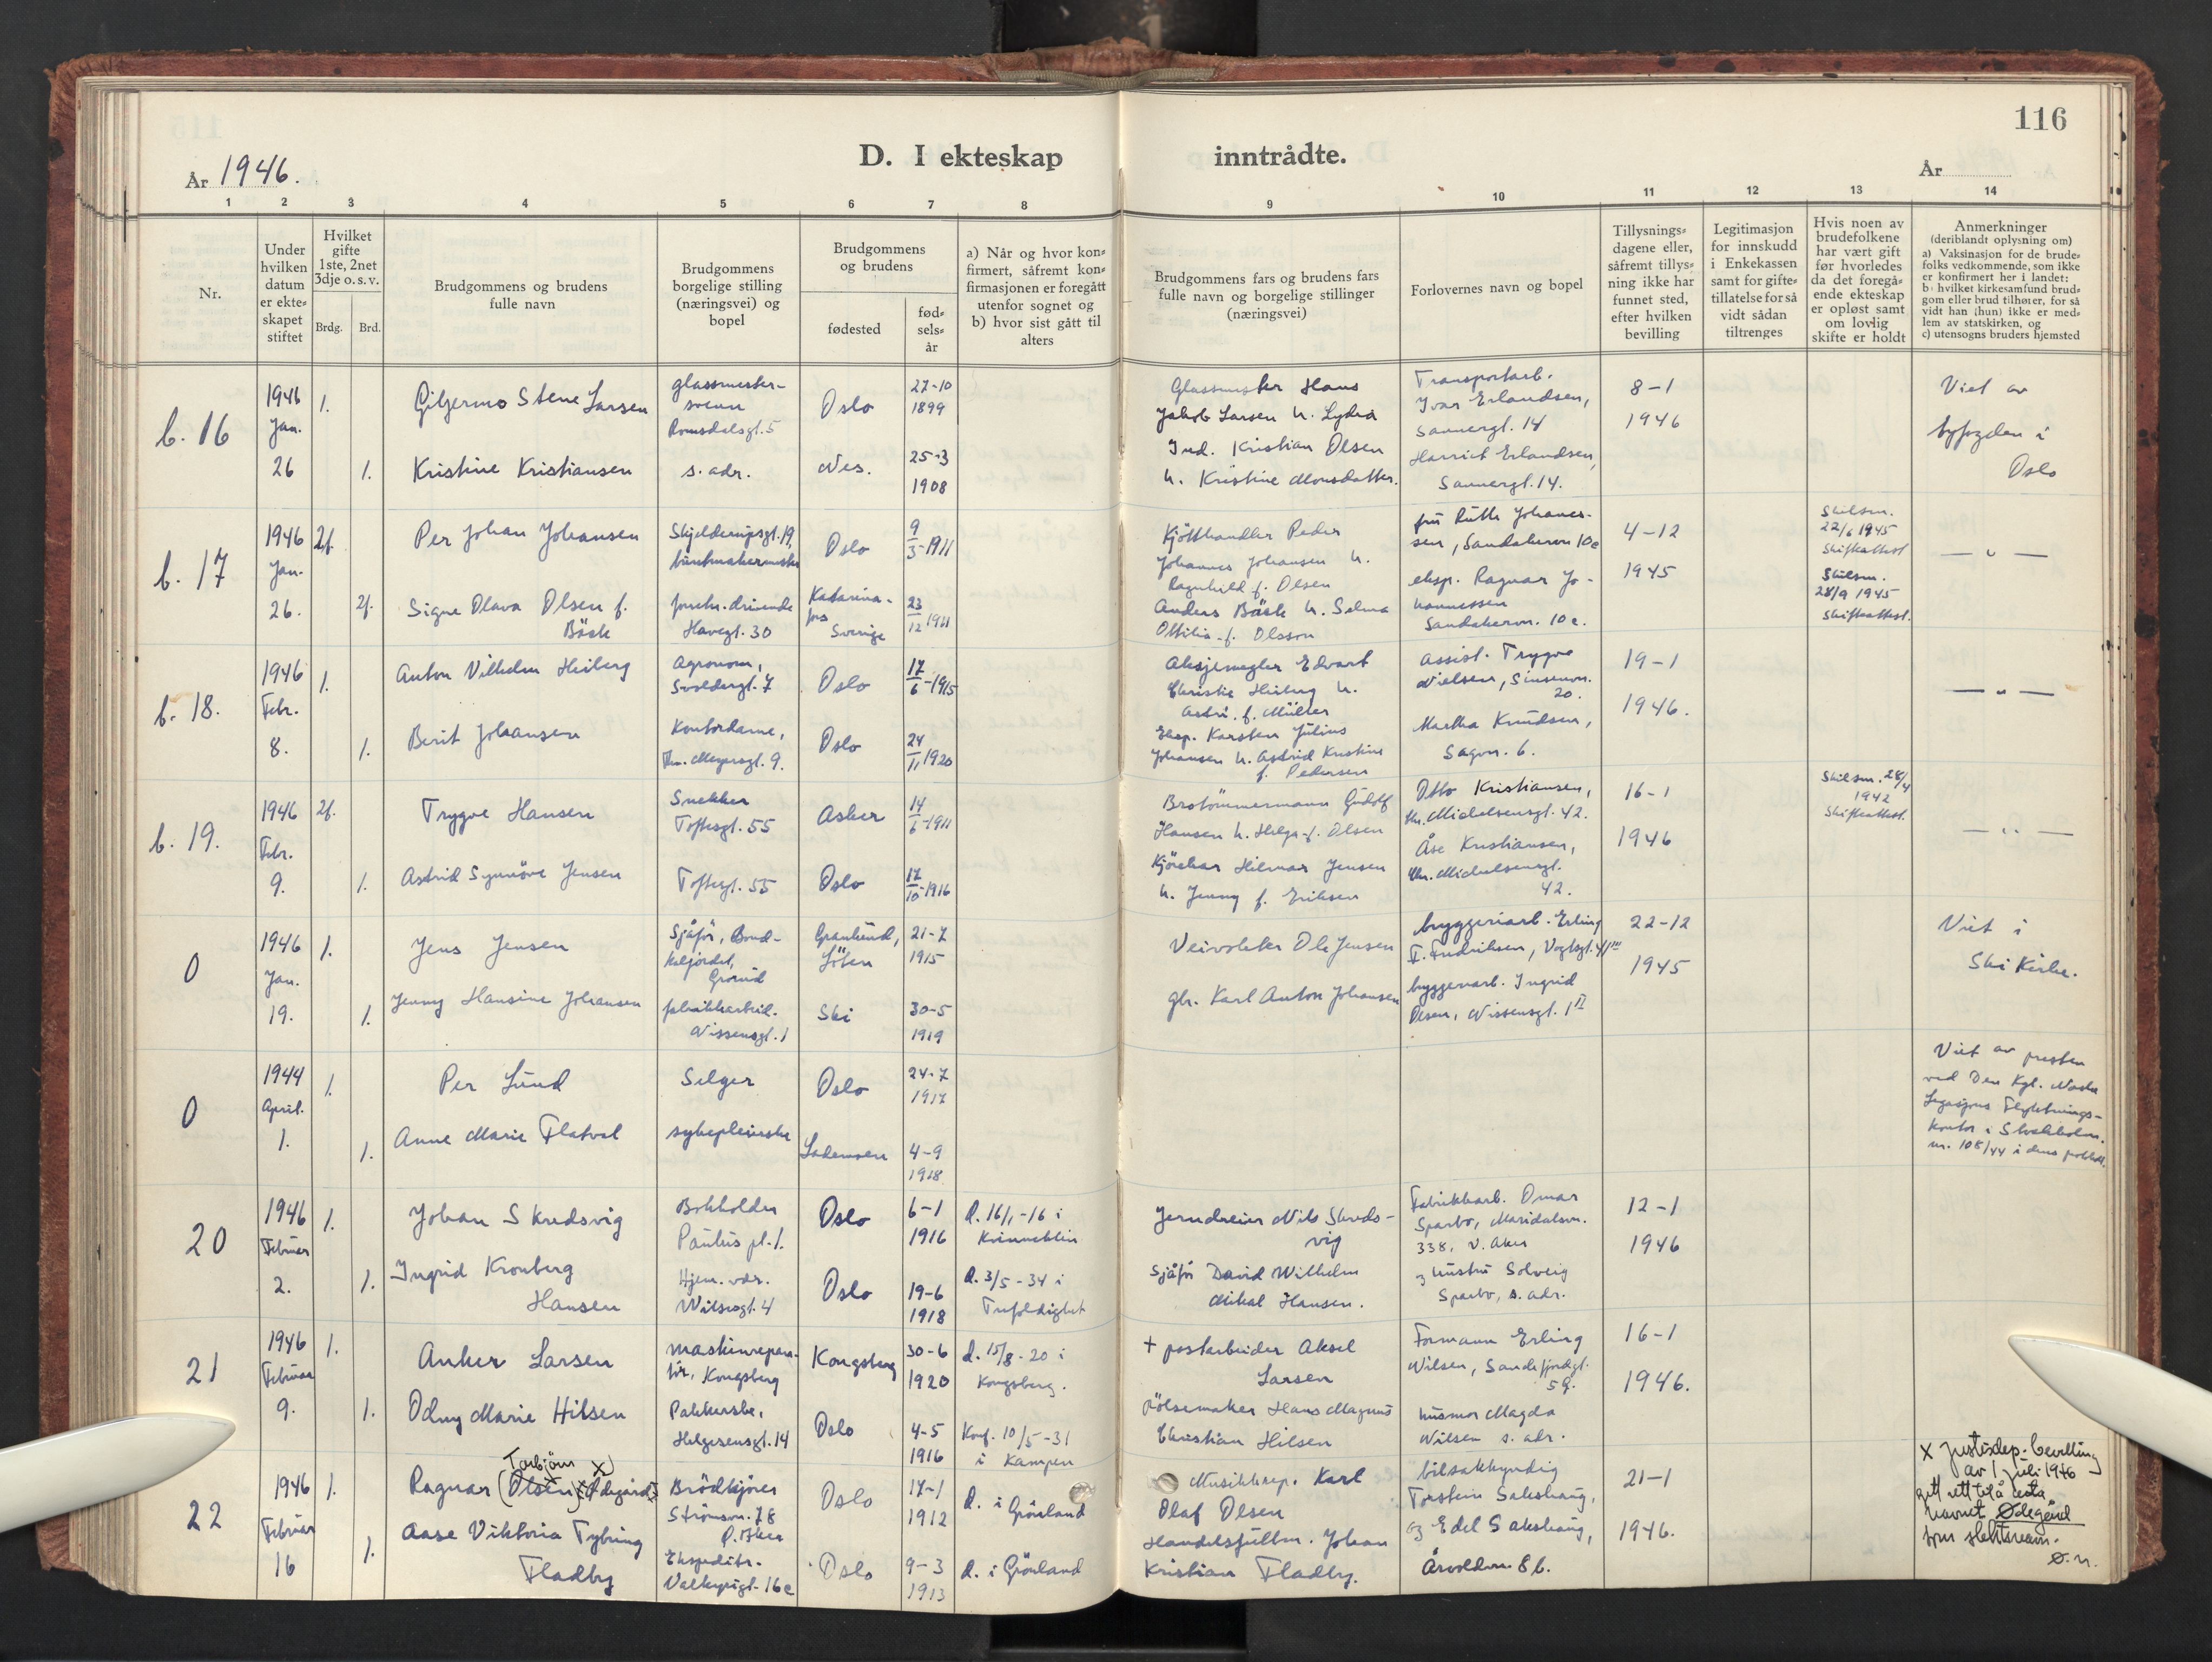 116
D. I ekteskap inntrådte.
År 1946.
År
1 2 3 4 5 6 7 8 9 10 11 12 13 14
Nr.
Under
hvilken
datum
er ekte-
skapet
stiftet
Hvilket
gifte
1ste, 2net
3dje o. s. v.
Brdg. Brd.
Brudgommens og brudens
fulle navn
Brudgommens
borgelige stilling
(næringsvei) og
bopel
Brudgommens
og brudens
fødested
fød-
sels-
år
a) Når og hvor kon-
firmert, såfremt kon-
firmasjonen er foregått
utenfor sognet og
b) hvor sist gått til
alters
Brudgommens fars og brudens fars
fulle navn og borgelige stillinger
(næringsvei)
Forlovernes navn og bopel
Tillysnings-
dagene eller,
såfremt tillys-
ning ikke har
funnet sted,
efter hvilken
bevilling
Legitimasjon
for innskudd
i Enkekassen
samt for gifte-
tillatelse for så
vidt sådan
tiltrenges
Hvis noen av
brudefolkene
har vært gift
før hvorledes
da det foregå-
ende ekteskap
er opløst samt
om lovlig
skifte er holdt
Anmerkninger
(deriblandt oplysning om)
a) Vaksinasjon for de brude-
folks vedkommende, som ikke
er konfirmert her i landet;
b) hvilket kirkesamfund brud-
gom eller brud tilhører, for så
vidt han (hun) ikke er med-
lem av statskirken, og
c) utensogns bruders hjemsted
b. 16
1946
Jan.
26
1.
1.
Giljermo Stene Larsen
Kristine Kristiansen
glassmester-
svenn
Romsdalsgt. 5
s. adr.
Oslo
Nes.
27-10
1899
25-3
1908
Glassmester Hans
Jakob Larsen h. Lydia
Ind. Kristian Olsen
h. Kristine Monsdatter.
Transportarb.
Ivar Erlandsen,
Sannergt. 14
Harriet Erlandsen,
Sannergt. 14.
8-1
1946
Viet av
byfogden i
Oslo
b. 17
1946
Jan.
26.
2f.
2f.
Per Johan Johansen
Signe Olava Olsen f.
Bäck
Skjelderupsgt. 19,
buntmakermester
forretn. drivende
Havegt. 30
Oslo
Katarina-
fors
Sverige
9
3-1911
23
12 1911
Kjötthandler Peder
Johannes Johansen h.
Ragnhild f. Olsen
Anders Bäck h. Selma
Ottilia f. Olsson
fru Ruth Johannes-
sen, Sandakervn 10c
eksp. Ragnar Jo-
hannessen
Sandakervn. 10c.
4-12
1945
Skilsm.
22/6 1945
Skifteattest
Skilsm.
28/9 1945
Skifteattest.
— " —
b. 18.
1946
Febr.
8.
1.
1.
Anton Vilhelm Heiberg
Berit Johansen
Agronom,
Svoldergt. 7
Kontordame,
Thv. Meyersgt. 9.
Oslo
Oslo
17
6-1915
24
11 1920
Aksjemegler Edvart
Christie Heiberg h.
Astri f. Müller
Eksp. Karsten Julius
Johansen h. Astrid Kristine
f. Pedersen
Assist. Trygve
Nielsen, Sinsenvn.
20.
Martha Knudsen,
Sagvn. 6.
19-1
1946.
— " —
b. 19.
1946
Febr.
9.
2f.
1.
Trygve Hansen
Astrid Synnöve Jensen
Snekker
Toftesgt. 55
Toftesgt. 55
Asker
Oslo
14
6-1911
17
10-1916
Brotömmermann Gudolf
Hansen h. Helga f. Olsen
Kjörekar Hilmar Jensen
h. Jenny f. Eriksen
Otto Kristiansen,
Chr. Michelsensgt. 42.
Åse Kristiansen,
Chr. Michelsensgt.
42.
16-1
1946
Skilsm. 28/4
1942
Skifteattest.
— " —
0
1946
Jan.
19.
1.
1.
Jens Jensen
Jenny Hansine Johansen
Sjåför, Bond-
kaljordet,
Grorud
fabrikkarbeid.
Nissensgt. 1
Granlund,
Löten
Ski
21-7
1915
30-5
1919
Veivokter Ole Jensen
gbr. Karl Anton Johansen
bryggeriarb. Erling
F. Fredriksen, Vogtsgt. 41 III
bryggeriarb. Ingrid
Olsen, Nissensgt. 1 II
22-12
1945
Viet i
Ski Kirke.
0
1944
April.
1.
1.
1.
Per Lund
Anne Marie Flatval
Selger
sykepleierske
Oslo
Lademoen
24-7
1917
4-9
1918
Viet av presten
ved Den Kgl. Norske
Legasjons Flyktnings-
kontor i Stockholm.
nr. 108/44 i dens protokoll.
20
1946
Februar
2.
1.
1.
Johan Skredsvig
Ingrid Kronberg
Hansen
Bokholder
Paulus pl. 1.
Hjem. vær.
Wilsesgt. 4
Oslo
Oslo
6-1
1916
19-6
1918
d. 16/1-16 i
Kvinneklin
d. 3/5-34 i
Trefoldighet
Jerndreier Nils Skreds-
vig
Sjåför David Wilhelm
Mikal Hansen.
Fabrikkarb. Omar
Sparbo, Maridalsvn.
338, V. Aker
og hustru Solveig
Sparbo, s. adr.
12-1
1946
21
1946
Februar
9.
1.
1.
Anker Larsen
Odny Marie Hilsen
maskinrepara-
tör, Kongsberg
Pakkerske,
Helgesensgt. 14
Kongsberg
Oslo
30-6
1920
4-5
1916
d. 15/8-20 i
Kongsberg.
Konf. 10/5-31
i Kampen
+ postarbeider Aksel
Larsen
Pölsemaker Hans Magnus
Christian Hilsen
Formann Erling
Nilsen, Sandefjordgt.
59.
husmor Magda
Nilsen s. adr.
16-1
1946.
22
1946
Februar
16
1.
1.
Torbjörn x)
Ragnar (Olsen) Ødegård
Aase Viktoria Tybring
Fladby
Brödkjörer
Strömsvn. 78
Ö. Aker
Ekspeditr.
Valkyrigt. 16c
Oslo
Oslo
17-1
1912
9-3
1913
d. i Grönland
d. i Grönland
Musikkrep. Karl
Olaf Olsen
Handelsfullm. Johan
Kristian Fladby.
bilsakkyndig
Torstein Sakshaug,
og Edel Sakshaug,
Årvollvn. 8b.
21-1
1946.
x Justisdep. bevilling
av 1 juli 1946
gitt rett til å ta
navnet Ødegård
som slektsnavn.
Ø. N.